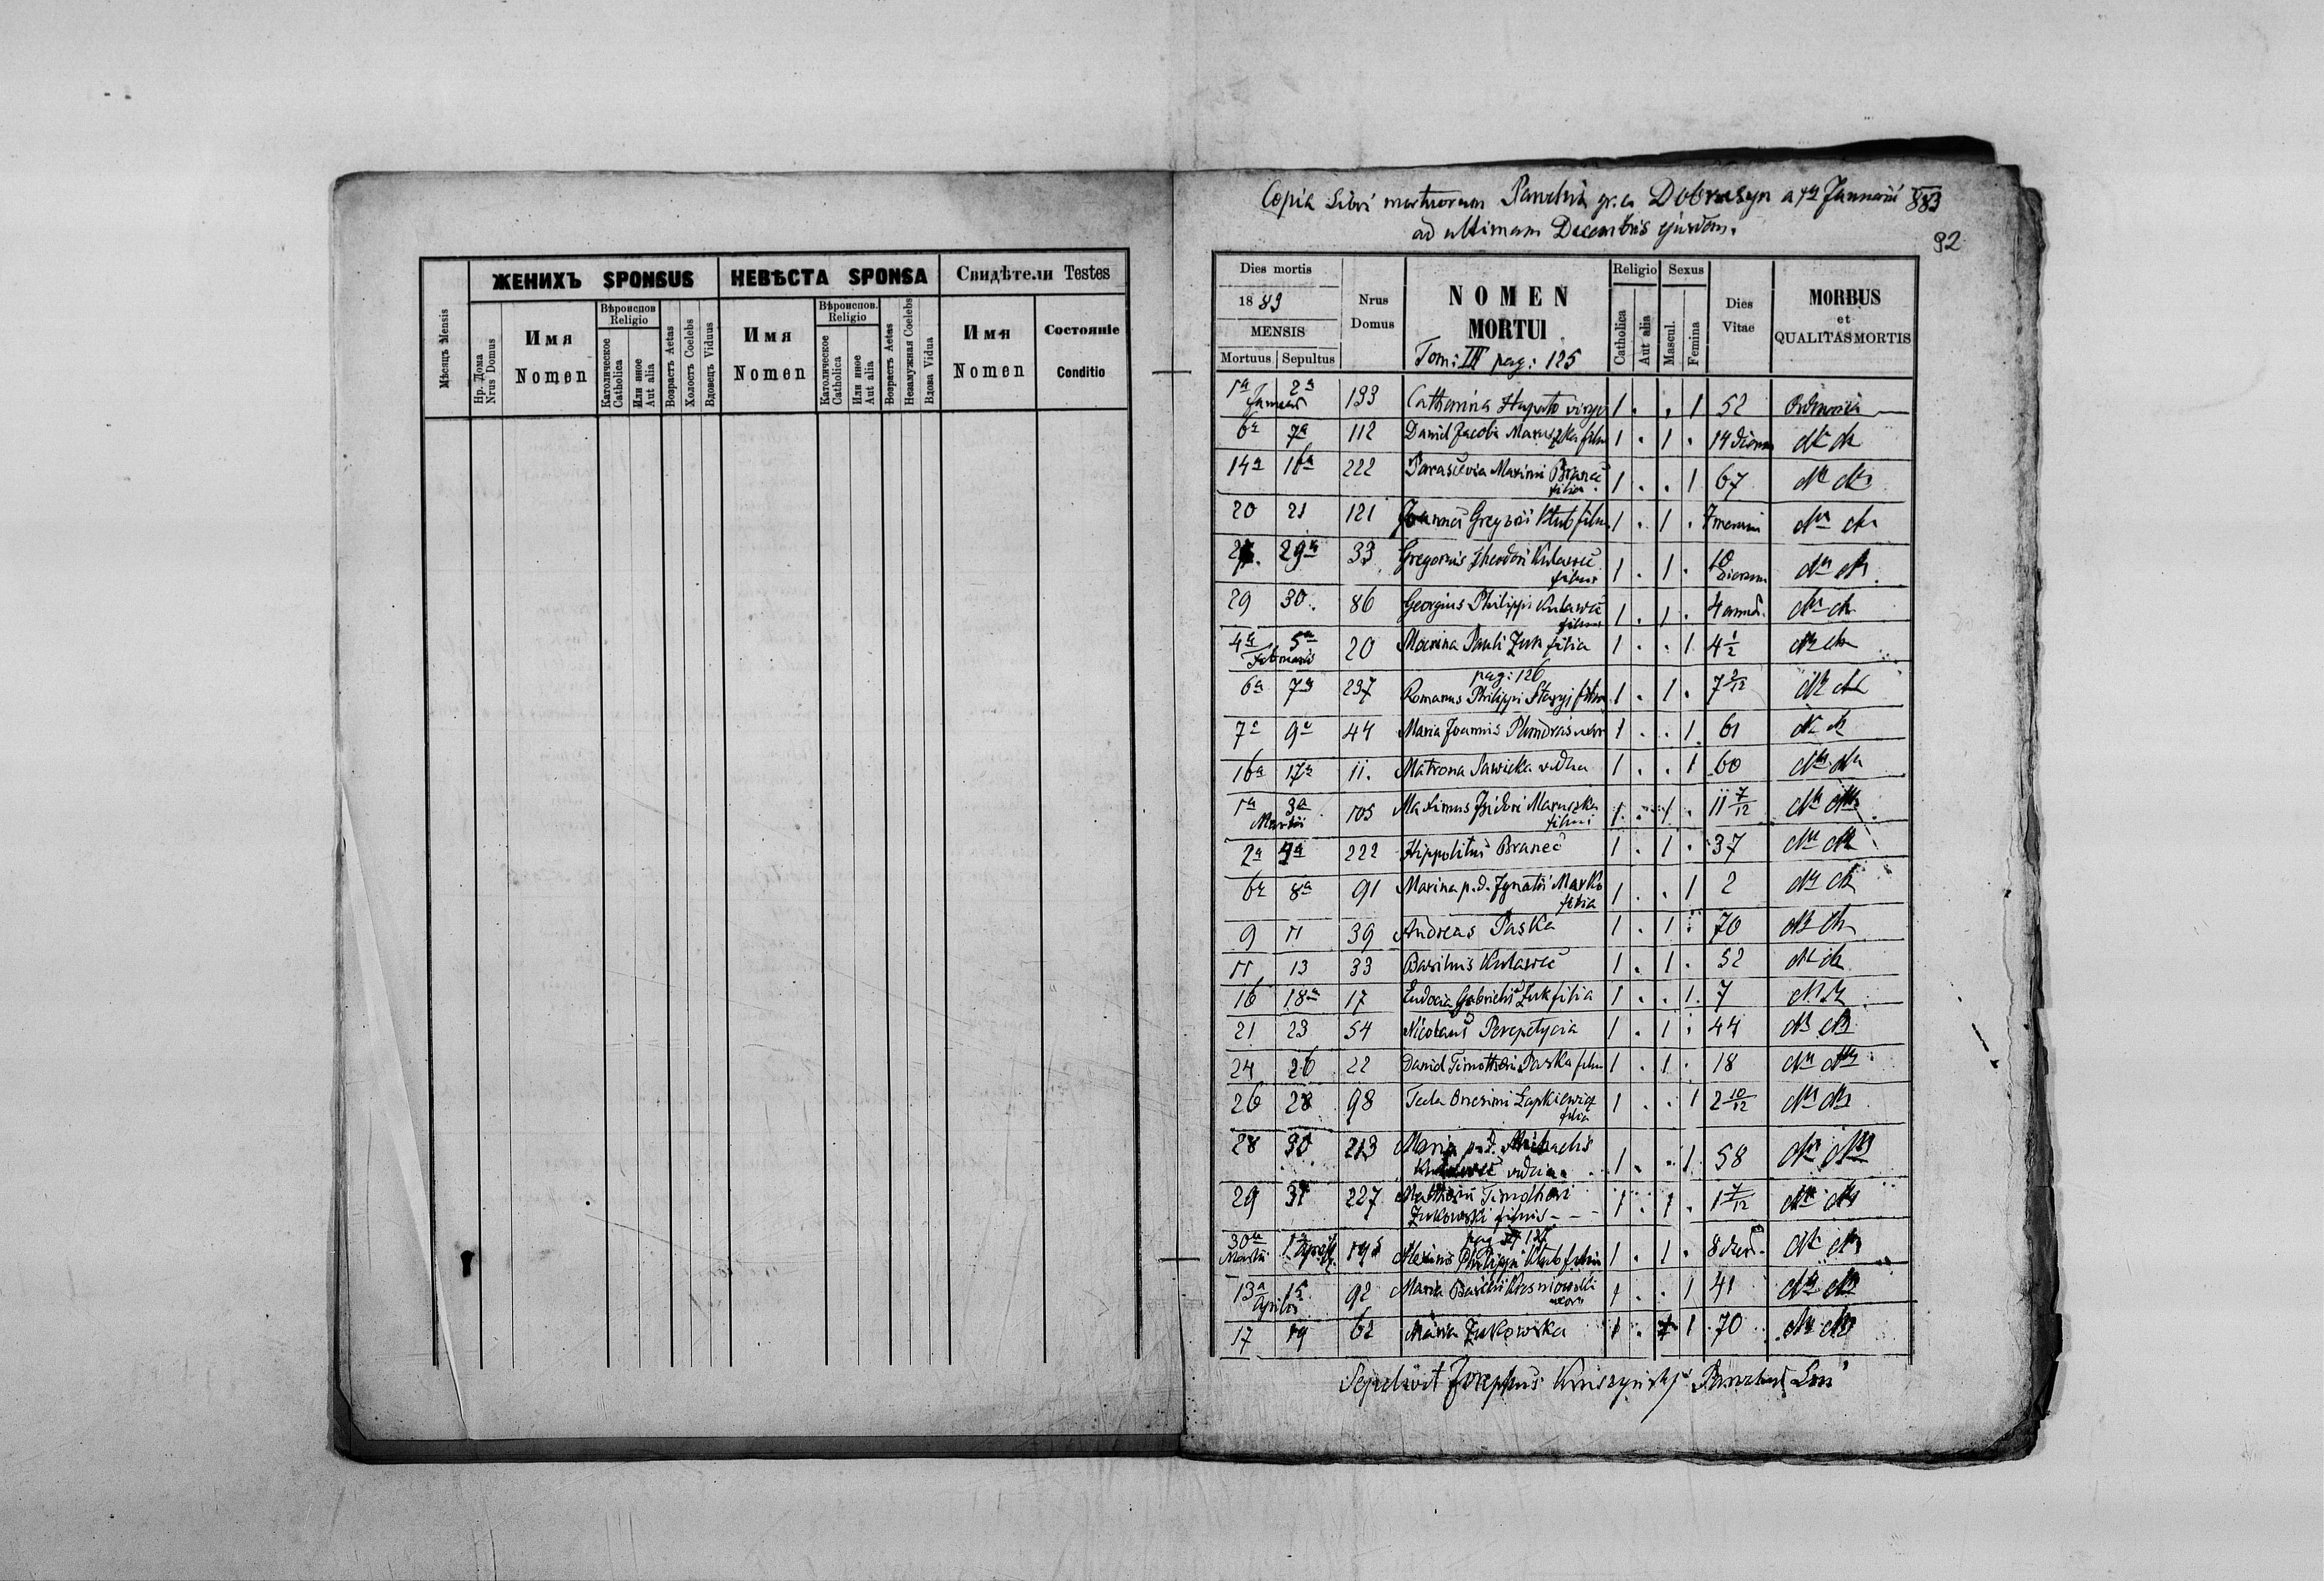 ЖЕНИХЪ SPONSUS НЕВѢСТА SPONSA Свидѣтели Testes
Мѣсяцъ Mensis
Нр. Дома Nrus Domus
Имя Nomen
Вѣроисповв Religio
Католическое Catholica
Или иное Aut alia
Возрастъ Aetas
Холостъ Coelebs
Вдовецъ Viduus
Имя Nomen
Вѣроиспов. Religio
Католическое Catholica
Или иное Aut alia
Возрастъ Aetas
Незамужная Coelebs
Вдова Vidua
Имя Nomen
Состояніе Conditio
Copia Libri mortuorum Parochiæ gr. c. Dobrosyn a 1ma Januarii 883
ad ultimam Decembris ejusdem.
92
Dies mortis
1883
MENSIS
Mortuus Sepultus
Nrus Domus
NOMEN
MORTUI
Tom: III pag: 125
Religio
Catholica
Aut alia
Sexus
Mascul.
Femina
Dies Vitae
MORBUS
et
QUALITAS MORTIS
1a 2a 193 Catharina 1 . . 1 52 Ordinaria
Januar
6a 7a 112 Daniel Jacobi Maruszka filius 1 . 1 . 14 dierum
14a 16a 222 Parascevia Maximi Braneć 1 . . 1 67
filia
20 21 121 Joannes Gregorii Kłub filius 1 . 1 . 7
29a 33 Gregorius Theodori Kulawec 1 . 1 . 10
filius dierum
29 30. 86 Georgius Philippi Kulawec 1 . 1 . 4
filius
4a 5a 20 Marina Pauli Żuk filia 1 . . 1 4 1/2
Februarii
pag: 126
6a 7a 237 Romanus Philippi filius 1 . 1 . 7
7a 9a 44 Maria Joannis 1 . . 1 61
16a 17a 11. Matrona Sawicka vidua 1 . . 1 60
1a 3a 105 Maximus Isidori Maruszka 1 . 1 . 11 7/12
Martii filius
2a 4a 222 Hippolitus Braneć 1 . 1 . 37
6a 8a 91 Marina p. d. Ignatii Marko 1 . . 1 2
filia
9 11 39 Andreas Paska 1 . 1 . 70
11 13 33 Basilius Kulawec 1 . 1 . 52
16 18a 17 Eudocia Gabrielis Żuk filia 1 . . 1 7
21 23 54 Nicolaus Perepetycia 1 . 1 . 44
24 26 22 Daniel Timothei Paska filius 1 . 1 . 18
26 28 98 Tecla Onesimi Łapkiewicz 1 . . 1 2 10/12
filia
28 30 213 Maria p. d. Michaelis
Kulawec vidua 1 . . 1 58
29 31 227 Timothei
Żukowski filius 1 . 1 . 1 7/12
pag 127
30a 1a Philippi Kłub filius 1 . 1 . 8
Martii Aprilis
13a 15 92 Maria Basilii 1 . . 1 41
Aprilis uxor
17 19 62 Maria Żukowska 1 . 1 70
Sepelivit Josephus Kruszyńskyj Parochus Loci